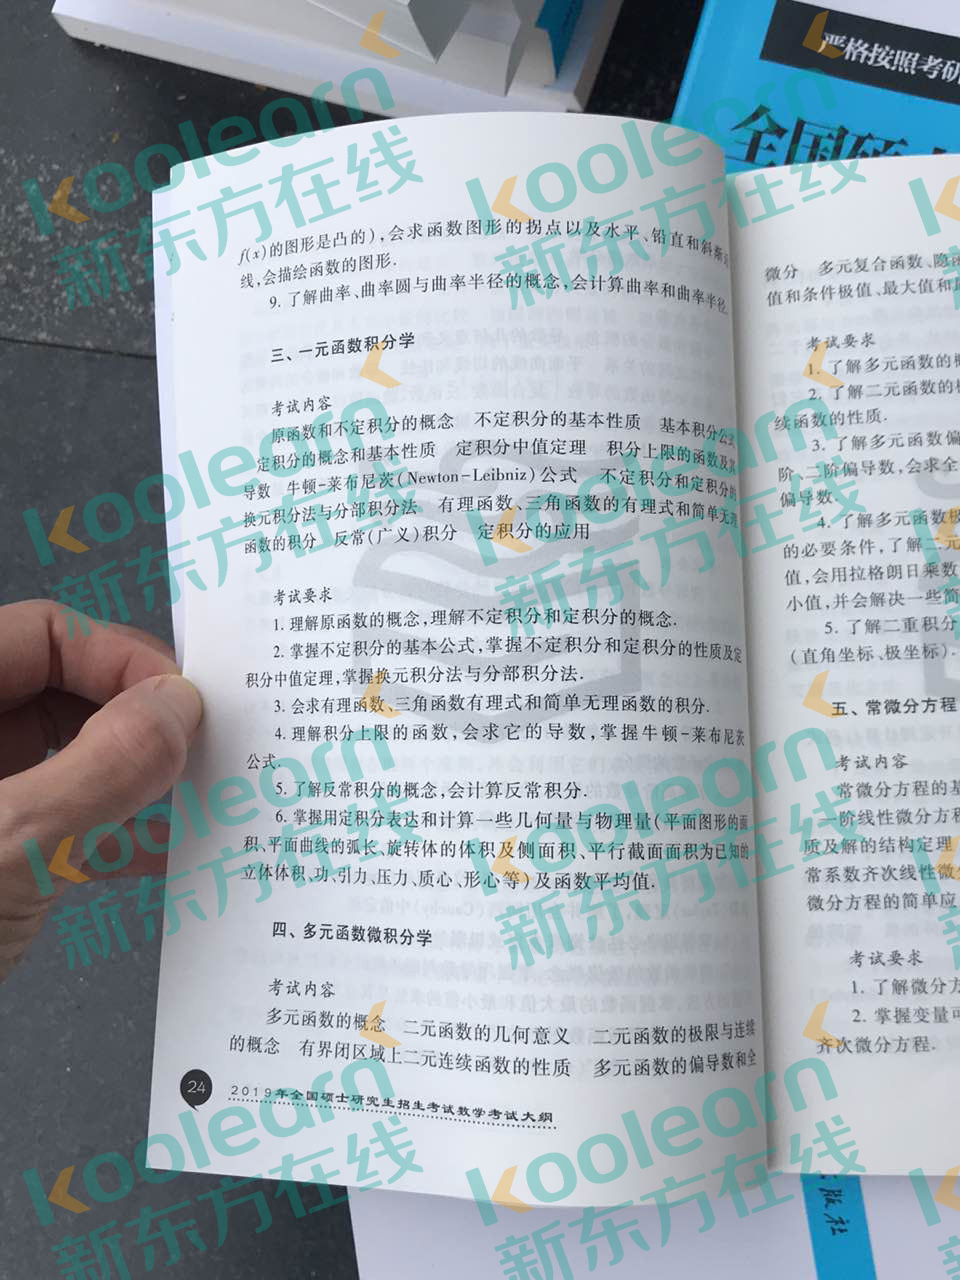 严格按照考研
全国硕
f(x)的图形是凸的),会求函数图形的拐点以及水平、铅直和斜渐近
线,会描绘函数的图形.
9. 了解曲率、曲率圆与曲率半径的概念,会计算曲率和曲率半径.
三、一元函数积分学
考试内容
原函数和不定积分的概念 不定积分的基本性质 基本积分公式
定积分的概念和基本性质 定积分中值定理 积分上限的函数及其
导数 牛顿-莱布尼茨(Newton-Leibniz)公式 不定积分和定积分的
换元积分法与分部积分法 有理函数、三角函数的有理式和简单无理
函数的积分 反常(广义)积分 定积分的应用
考试要求
1. 理解原函数的概念,理解不定积分和定积分的概念.
2. 掌握不定积分的基本公式,掌握不定积分和定积分的性质及定
积分中值定理,掌握换元积分法与分部积分法.
3. 会求有理函数、三角函数有理式和简单无理函数的积分.
4. 理解积分上限的函数,会求它的导数,掌握牛顿-莱布尼茨
公式.
5. 了解反常积分的概念,会计算反常积分.
6. 掌握用定积分表达和计算一些几何量与物理量(平面图形的面
积、平面曲线的弧长、旋转体的体积及侧面积、平行截面面积为已知的
立体体积、功、引力、压力、质心、形心等)及函数平均值.
四、多元函数微积分学
考试内容
多元函数的概念 二元函数的几何意义 二元函数的极限与连续
的概念 有界闭区域上二元连续函数的性质 多元函数的偏导数和全
24
2019年全国硕士研究生招生考试数学考试大纲
微分 多元复合函数、隐函
值和条件极值、最大值和
考试要求
1. 了解多元函数的概
2. 了解二元函数的
续函数的性质.
3. 了解多元函数偏
阶、二阶偏导数,会求全
偏导数.
4. 了解多元函数极
的必要条件,了解二元
值,会用拉格朗日乘数
小值,并会解决一些简
5. 了解二重积分
(直角坐标、极坐标).
五、常微分方程
考试内容
常微分方程的基
一阶线性微分方程
质及解的结构定理
常系数齐次线性微分
微分方程的简单应
考试要求
1. 了解微分方
2. 掌握变量可
齐次微分方程.
版社
koolearn
新东方在线